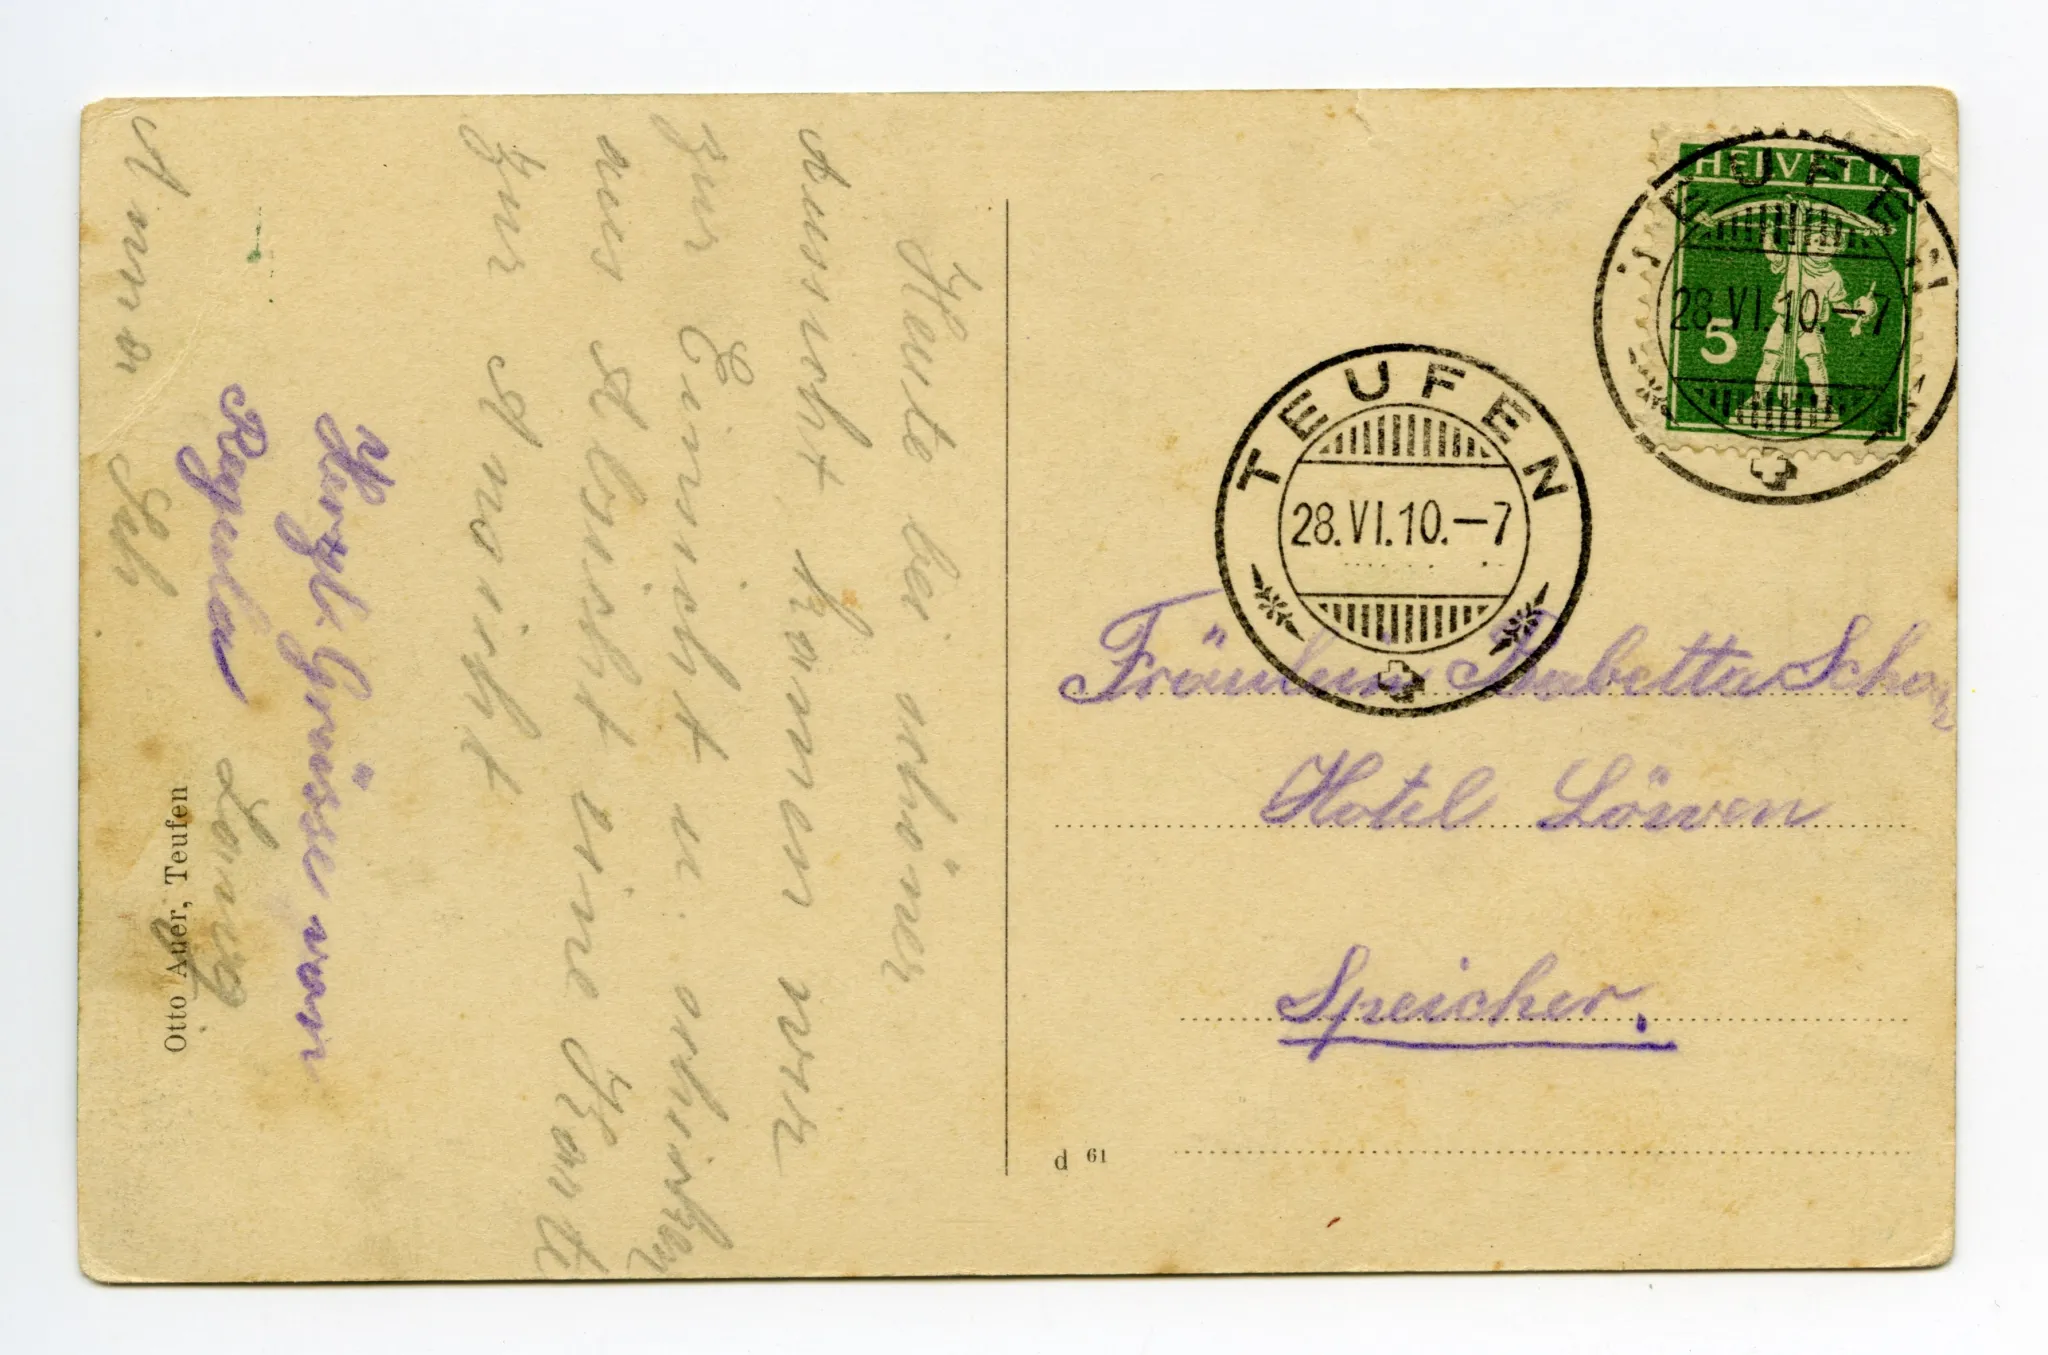 Heute bei schöner
Aussicht kamen wir
zur Einsicht u. schicken
aus Absicht eine Karte
zur Ansicht
Herzl. Grüsse von
Regula
Anna
Lony
Otto Auer, Teufen
HELVETIA
5
TEUFEN
28.VI.10.–7
TEUFEN
28.VI.10.–7
Fräulein Babetta
Hotel Löwen
Speicher.
d 61